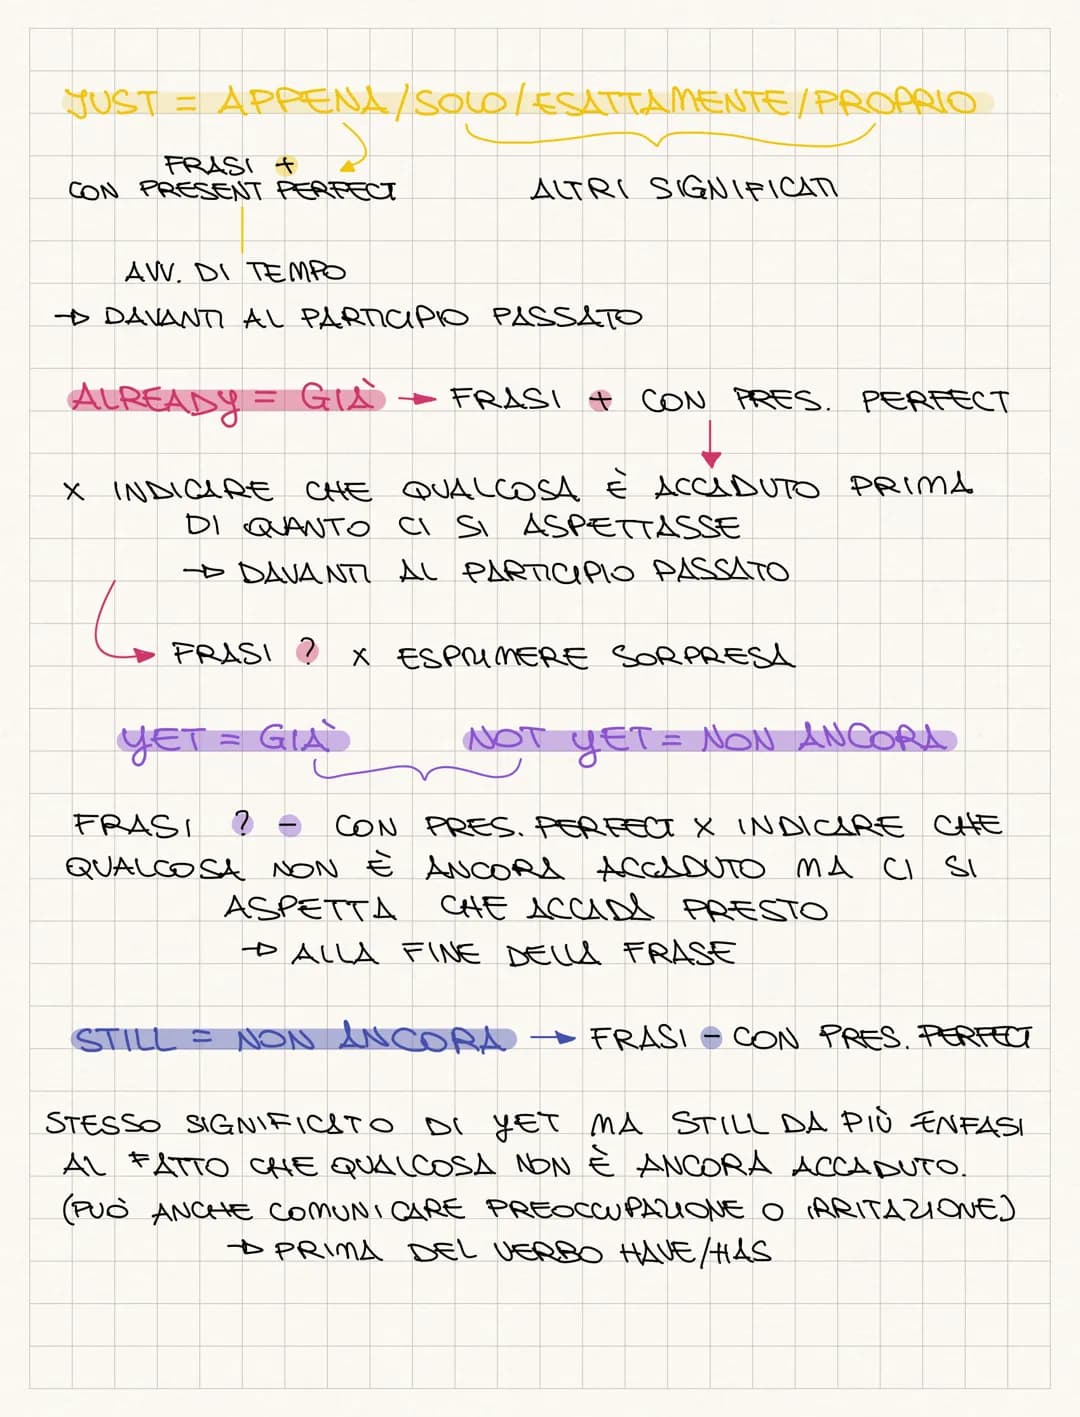 JUST = APPENA/SOLO/ESATTAMENTE/PROPRIO
FRASI +
CON PRESENT PERFECT
ALTRI SIGNIFICATI
AVV. DI TEMPO
→ DAVANTI AL PARTICIPIO PASSATO
ALREADY = GIÀ → FRASI + CON PRES. PERFECT
X INDICARE CHE QUALCOSA È ACCADUTO PRIMA
DI QUANTO CI SI ASPETTASSE
→ DAVANTI AL PARTICIPIO PASSATO
FRASI ? X ESPRIMERE SORPRESA
YET = GIÀ NOT YET = NON ANCORA
FRASI ? - CON PRES. PERFECT X INDICARE CHE
QUALCOSA NON È ANCORA ACCADUTO MA CI SI
ASPETTA CHE ACCADA PRESTO
→ ALLA FINE DELLA FRASE
STILL = NON ANCORA → FRASI - CON PRES. PERFECT
STESSO SIGNIFICATO DI YET MA STILL DA PIÙ ENFASI
AL FATTO CHE QUALCOSA NON È ANCORA ACCADUTO.
(PUÒ ANCHE COMUNICARE PREOCCUPAZIONE O IRRITAZIONE)
→ PRIMA DEL VERBO HAVE/HAS